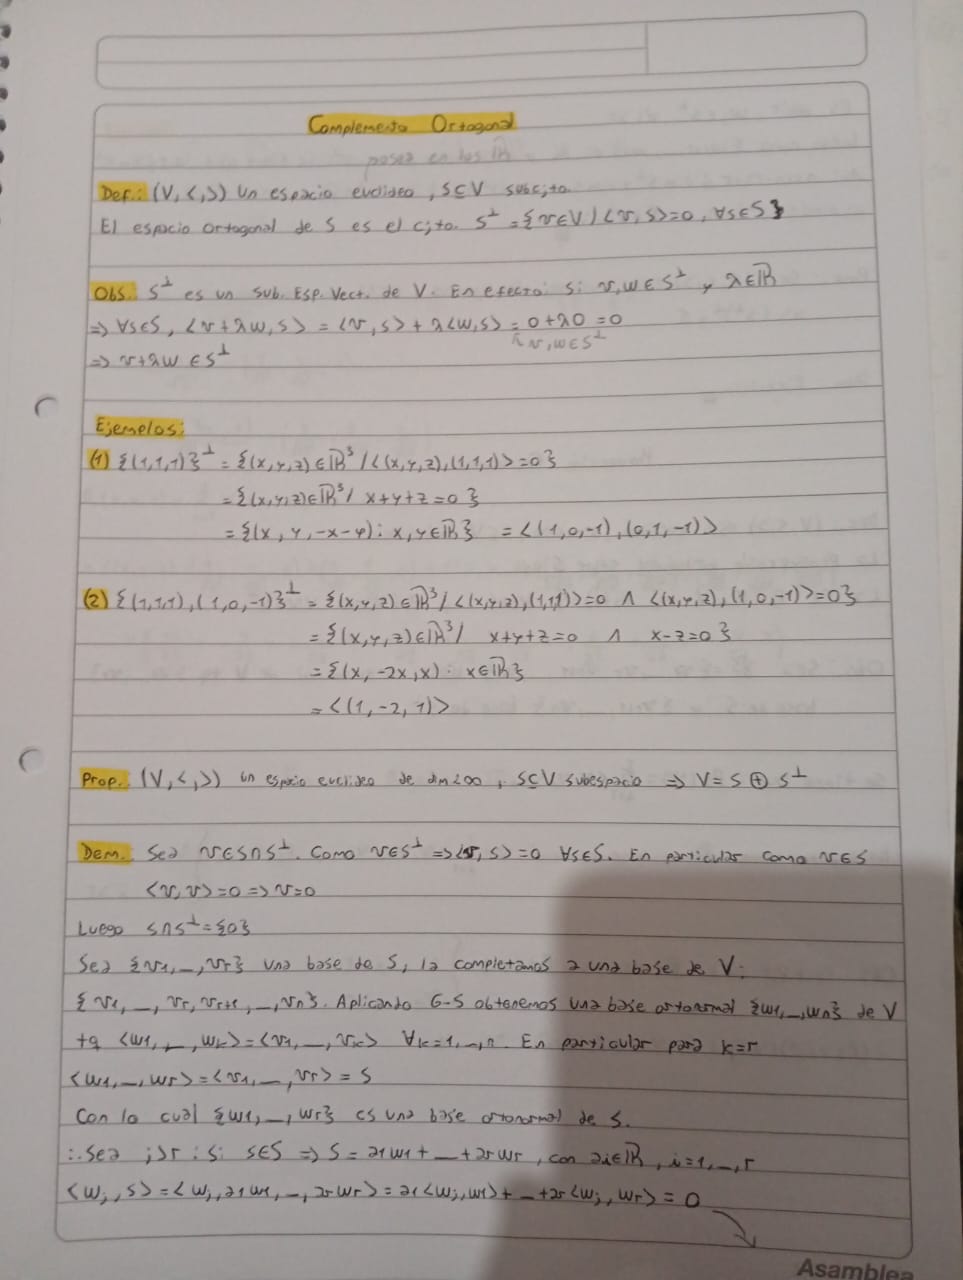 Complemento Ortogonal
Def.: (V, <,>) un espacio euclideo, S⊆V subcjto.
El espacio ortogonal de S es el cjto. S^⊥ = {v∈V / <v,s>=0, ∀s∈S}
Obs: S^⊥ es un sub. Esp. Vect. de V. En efecto: Si v,w∈S^⊥ y λ∈ℝ
⇒ ∀s∈S, <v+λw,s> = <v,s> + λ<w,s> = 0+λ0 = 0
↑ v,w∈S^⊥
⇒ v+λw ∈ S^⊥
Ejemplos:
(1) {(1,1,1)}^⊥ = {(x,y,z)∈ℝ³ / <(x,y,z),(1,1,1)>=0}
= {(x,y,z)∈ℝ³ / x+y+z=0}
= {(x, y, -x-y): x,y∈ℝ} = <(1,0,-1),(0,1,-1)>
(2) {(1,1,1),(1,0,-1)}^⊥ = {(x,y,z)∈ℝ³ / <(x,y,z),(1,1,1)>=0 ∧ <(x,y,z),(1,0,-1)>=0}
= {(x,y,z)∈ℝ³ / x+y+z=0 ∧ x-z=0}
= {(x, -2x, x): x∈ℝ}
= <(1,-2,1)>
Prop. (V, <,>) un espacio euclideo de dim<∞, S⊆V subespacio ⇒ V = S ⊕ S^⊥
Dem. Sea v∈S∩S^⊥. Como v∈S^⊥ ⇒ <v,s>=0 ∀s∈S. En particular como v∈S
<v,v>=0 ⇒ v=0
Luego S∩S^⊥={0}
Sea {v1,_,vr} una base de S, la completamos a una base de V:
{v1,_,vr,vr+1,_,vn}. Aplicando G-S obtenemos una base ortonormal {w1,_,wn} de V
tq <w1,_,wk>=<v1,_,vk> ∀k=1,_,n. En particular para k=r
<w1,_,wr>=<v1,_,vr>=S
Con lo cual {w1,_,wr} es una base ortonormal de S.
∴ Sea j>r : Si s∈S ⇒ s=a1w1+_+arwr, con ai∈ℝ, i=1,_,r
<wj,s>=<wj,a1w1,_,arwr>=a1<wj,w1>+_+ar<wj,wr>=0
Asamblea